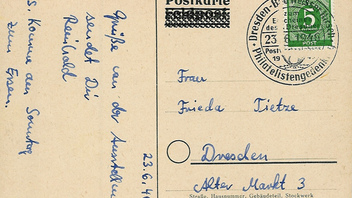 Postkarte
Feldpost
5
Dresden-B
23.6.194
Philatelistengedenk
Grüße von der Ausstellung
sendet Dir
Reinhold
S. Komme am Sonntag
zum Essen.
23.6.4
Frau
Frieda Tietze
Dresden
Alter Markt 3
Straße, Hausnummer, Gebäudeteil, Stockwerk